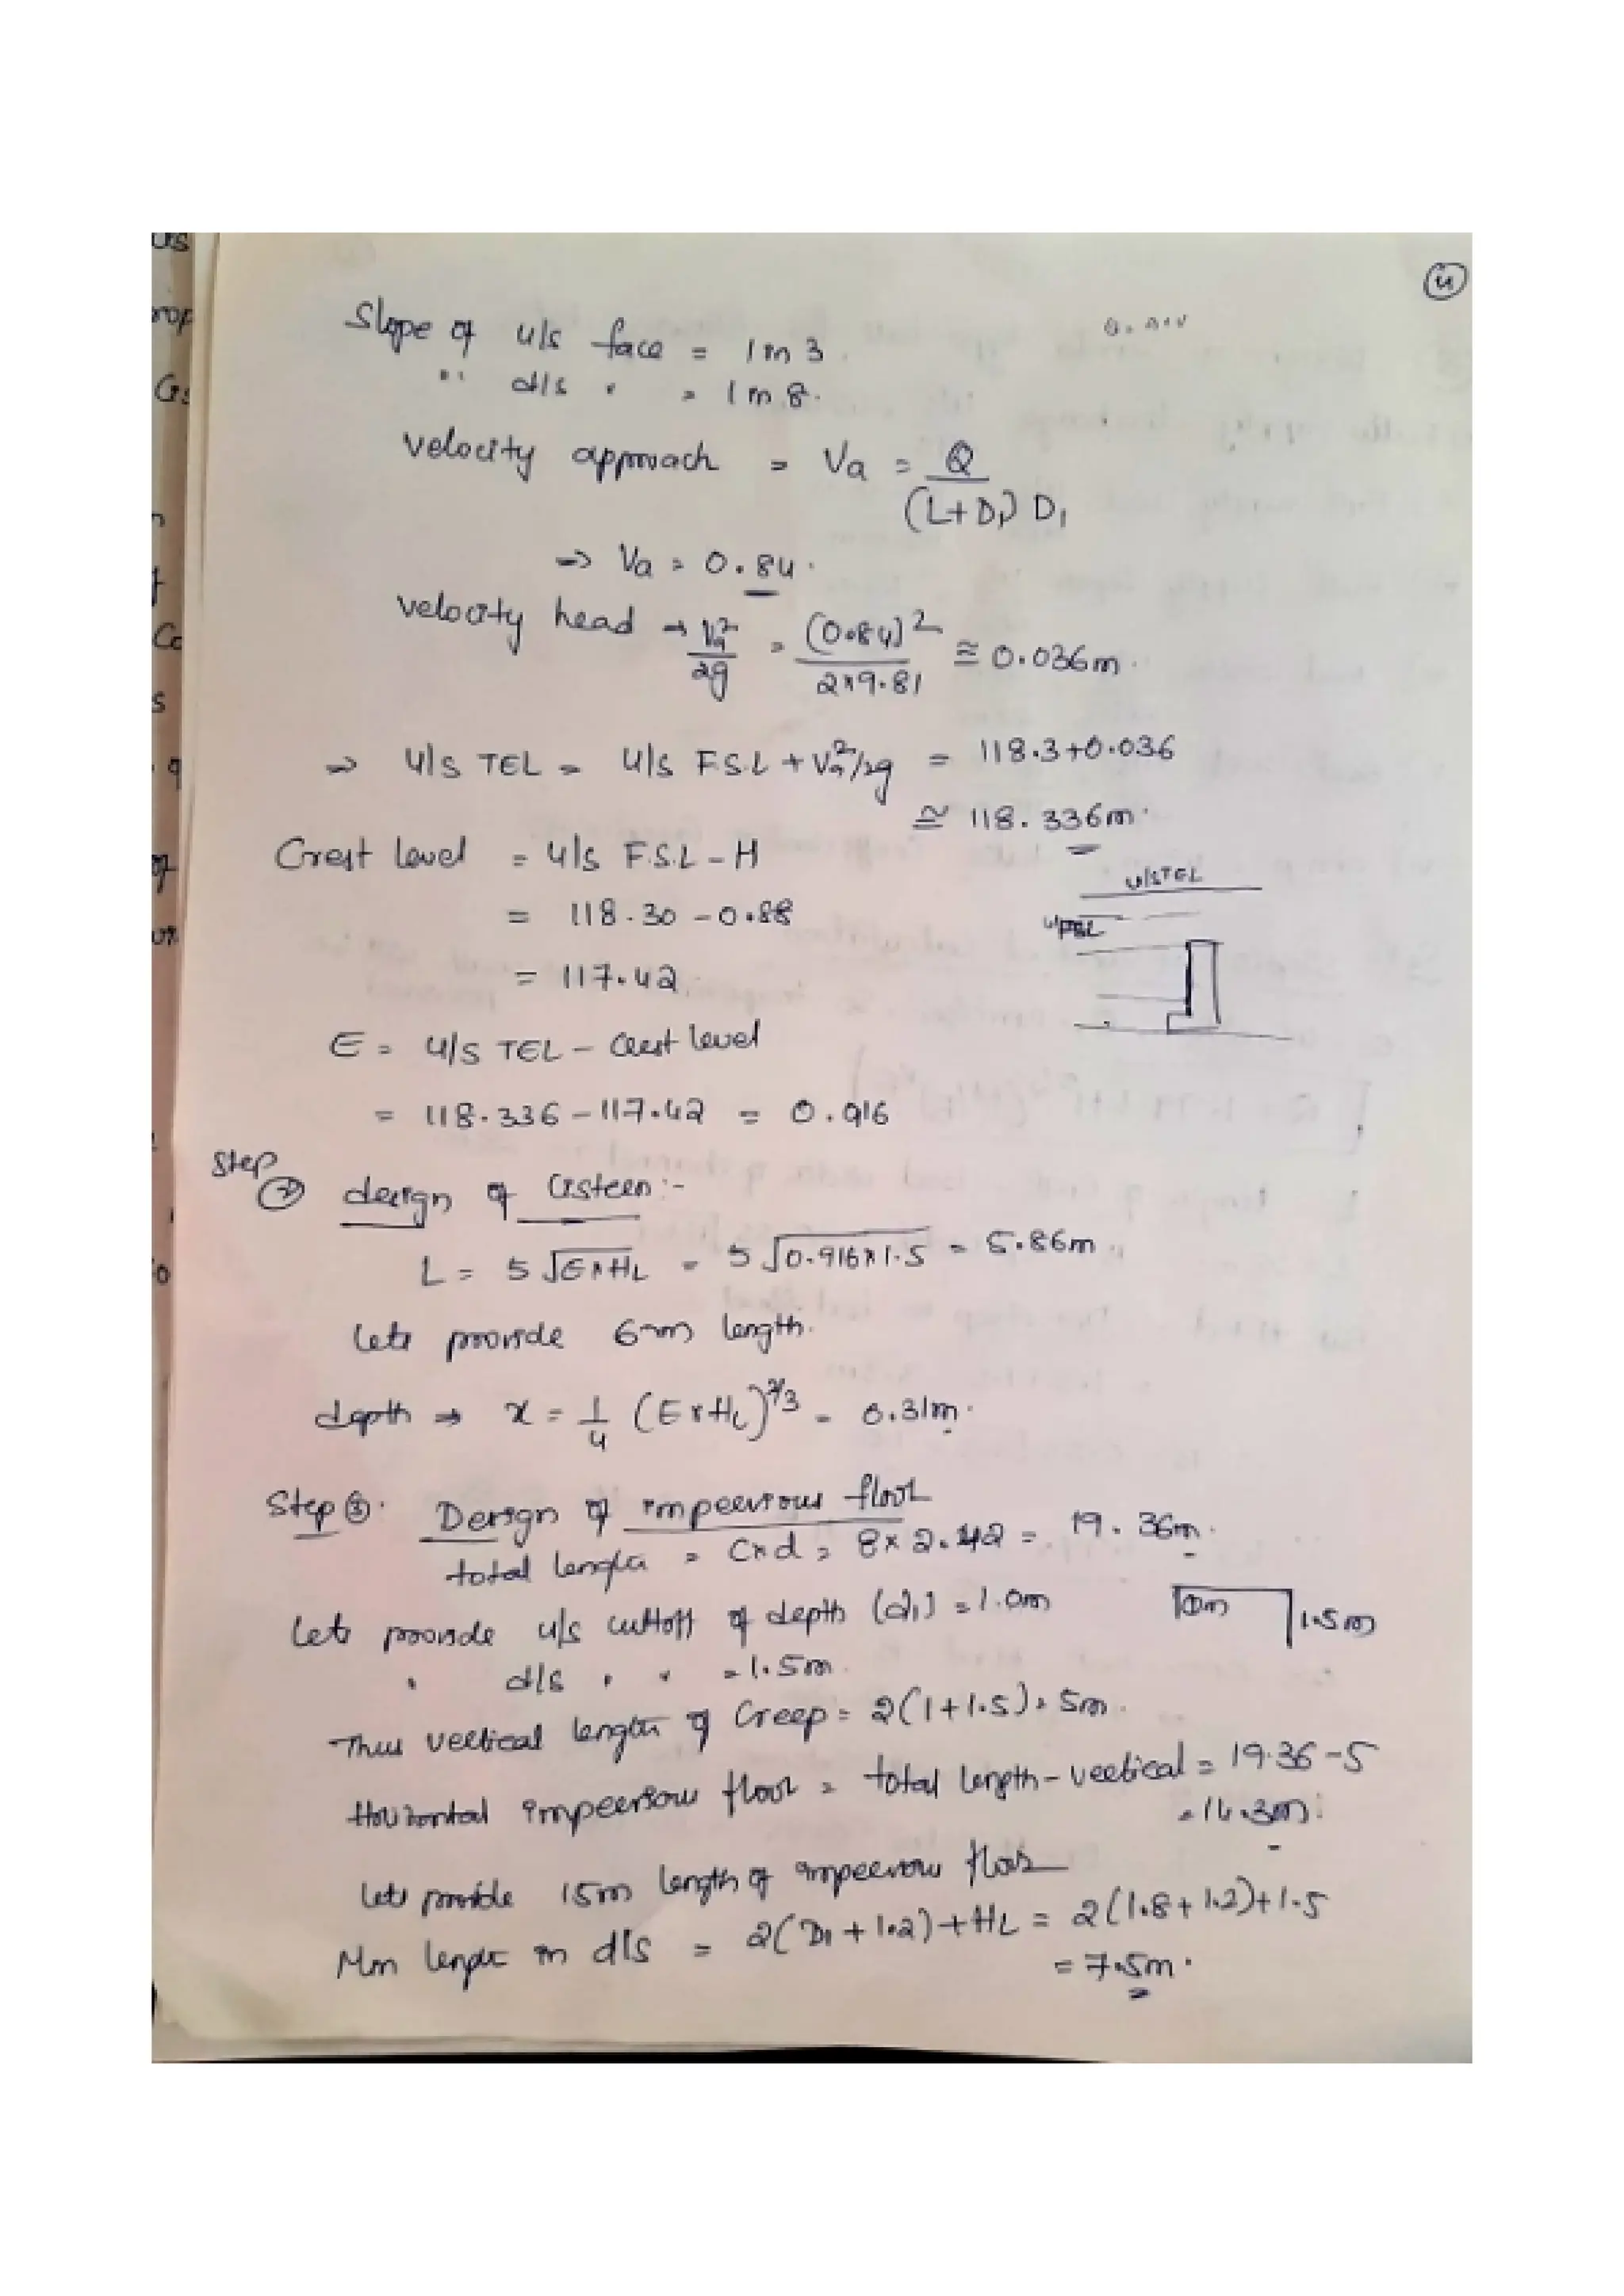 4
Slope of u/s face = 1 in 3.
" d/s " = 1 in 8.
velocity approach = Va = Q / (L+D1) D1
⇒ Va = 0.84.
velocity head → Va²/2g = (0.84)² / 2×9.81 ≅ 0.036m.
⇒ u/s TEL = u/s F.S.L + Va²/2g = 118.3+0.036
≅ 118.336m.
Crest level = u/s F.S.L - H
= 118.30 - 0.88
= 117.42
u/s TEL
u/s FSL
E = u/s TEL - Crest level
= 118.336 - 117.42 = 0.916
Step ② design of Cisteen:-
L = 5 √E×HL = 5 √0.916×1.5 = 5.86m.
lets provide 6m length.
depth ⇒ x = 1/4 (E×HL)^2/3 = 0.31m.
Step ③. Design of impervious floor
total length = C×d = 8×2.42 = 19.36m.
lets provide u/s cuttoff of depth (d1) = 1.0m
" d/s " " = 1.5m.
1m 1.5m
Thus vertical length of Creep = 2(1+1.5) = 5m.
Horizontal impervious floor = total length - vertical = 19.36-5
= 14.3m.
lets provide 15m length of impervious floor
Min length in d/s = 2(D1+1.2)+HL = 2(1.8+1.2)+1.5
= 7.5m.